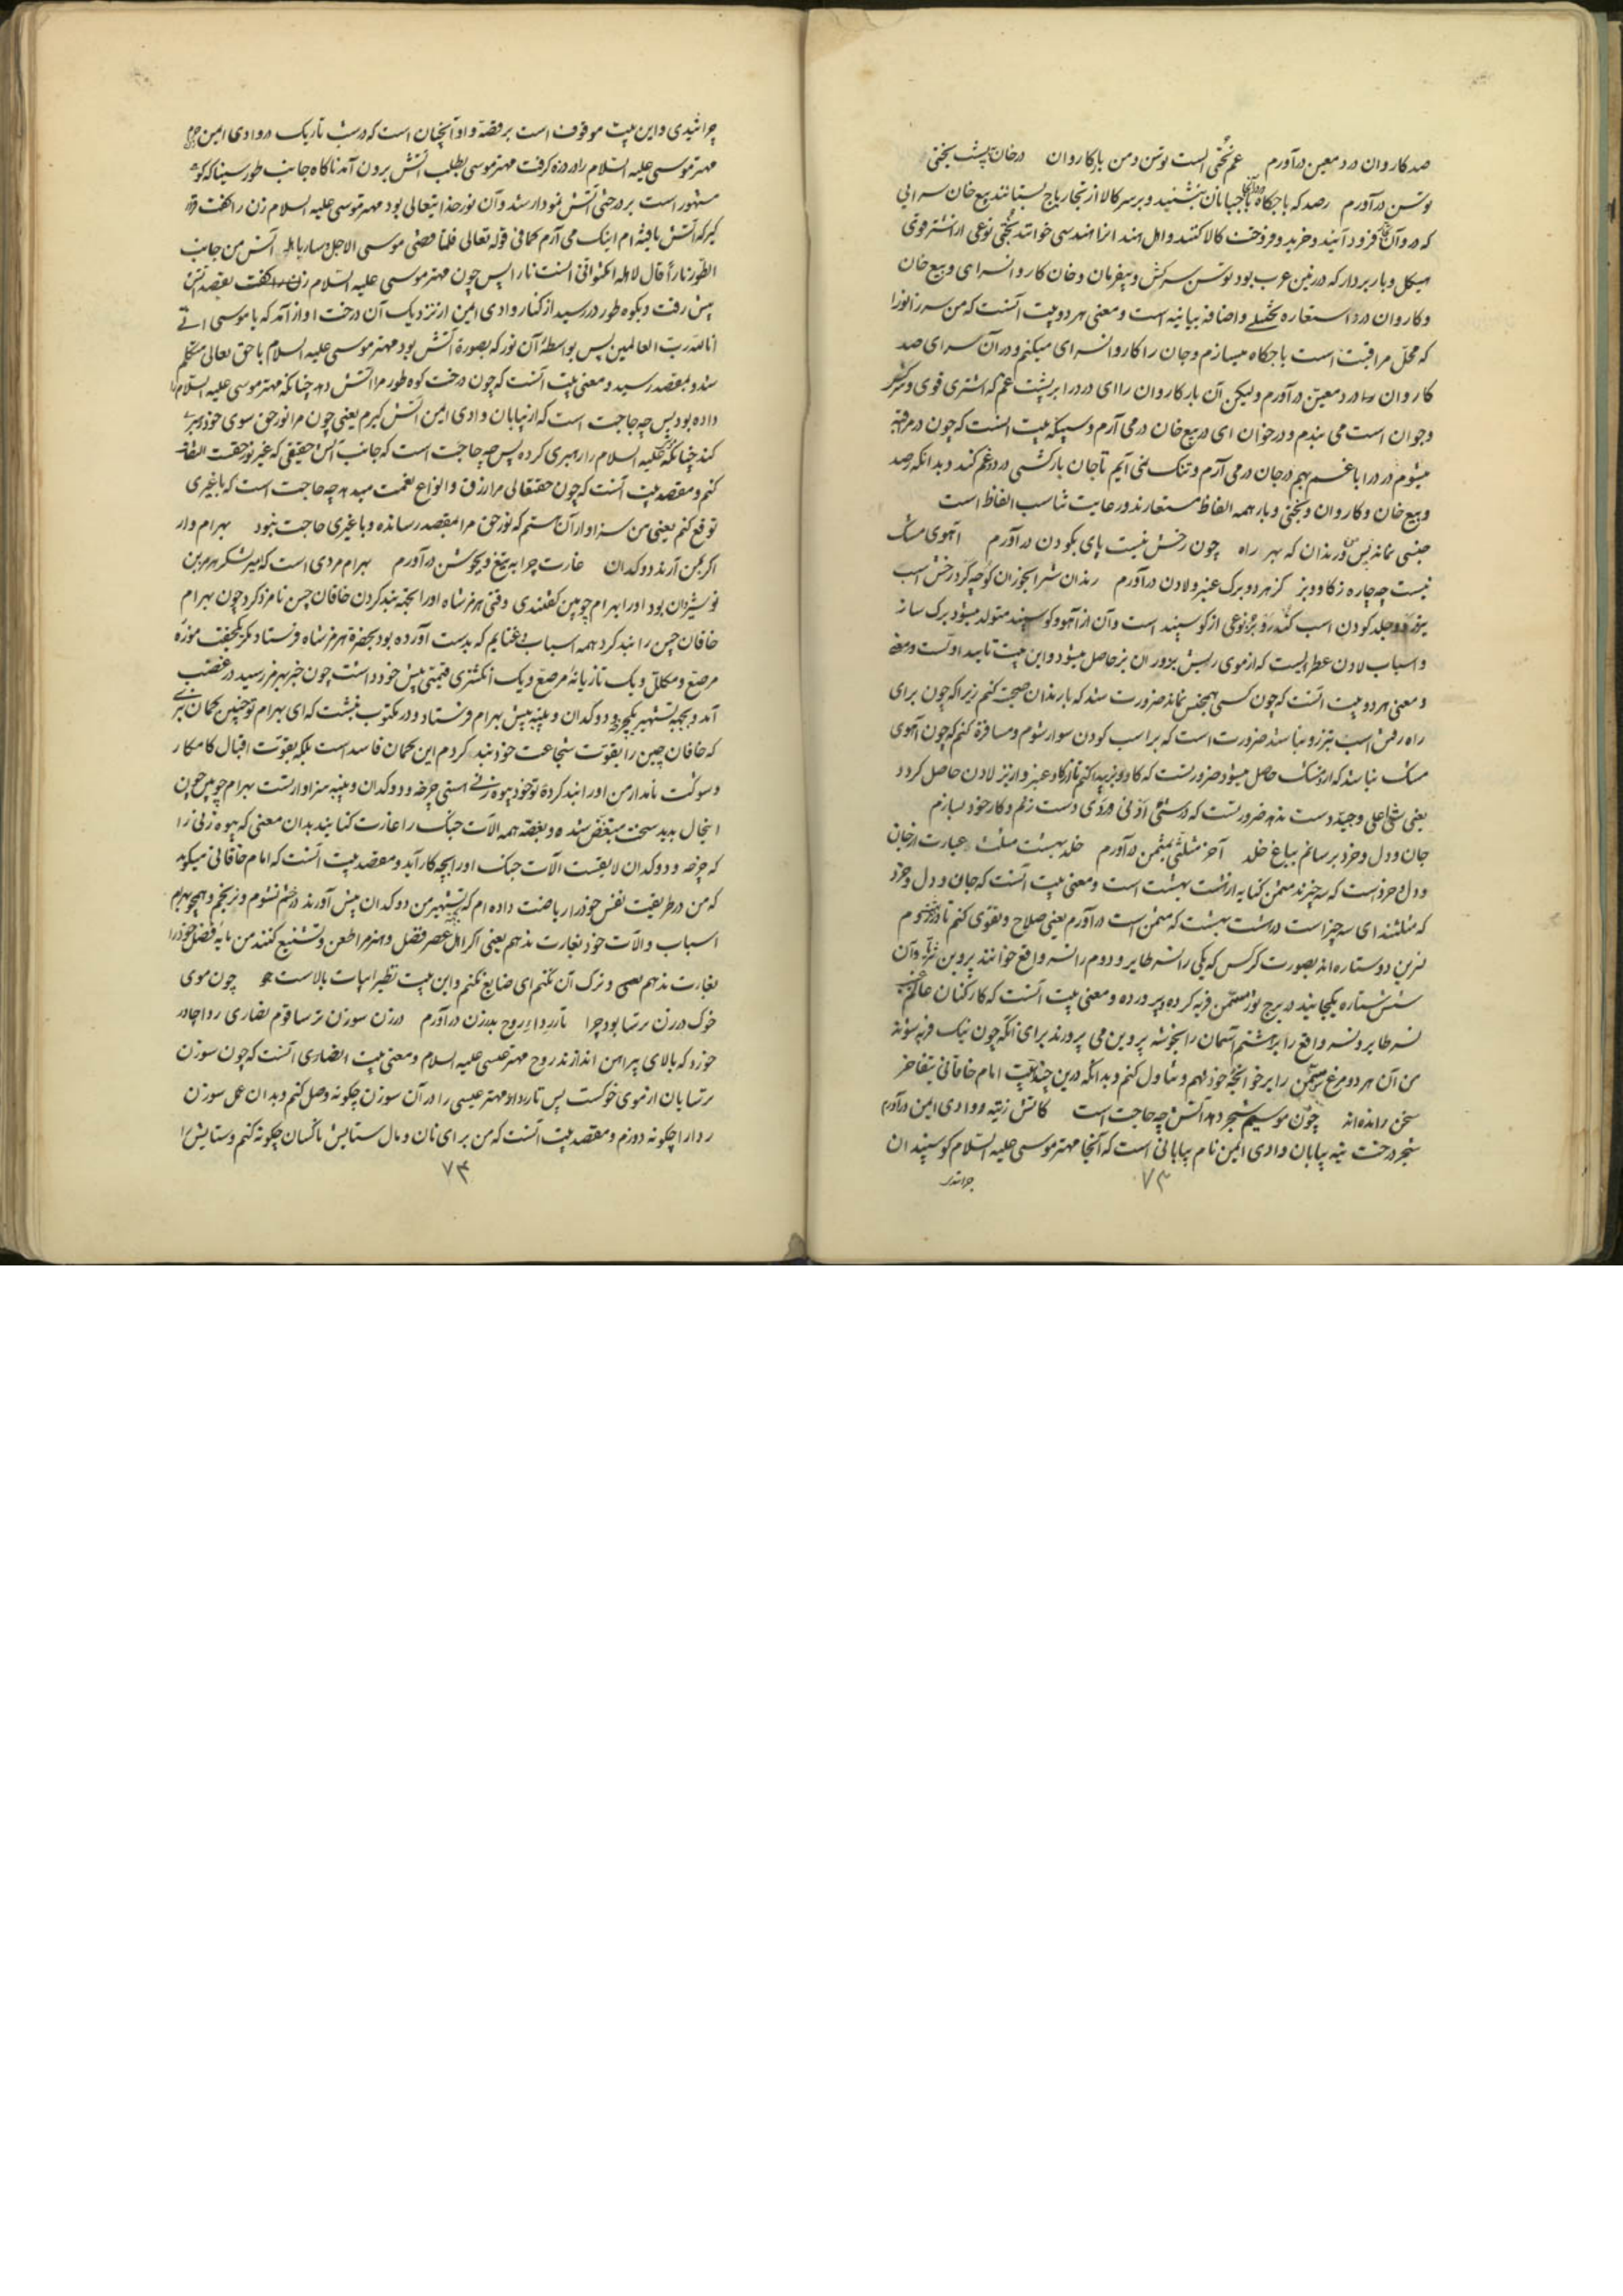 صد کاروان درد معین درآورم غم بختی است توسن و من بار کاروان در خان پشت بختی
توسن درآورم رصد که باجگاه باجبانان بنشینند و بر سر کالا از تجار باج بستانند بیع خان سرایی
که در آن فرود آیند و خرید و فروخت کالا کنند و اهل هند آنرا هندسی خوانند بختی نوعی از اشتر قوی
هیکل و باربردار که در زمین عرب بود توسن سرکش و بیفرمان و خان کاروانسرای و بیع خان
و کاروان درد استعاره تخییلی و اضافه بیانیه است و معنی هر دو بیت آنست که من سر زانو را
که محل مراقبت است باجگاه میسازم و جان را کاروانسرای میکنم و در آن سرای صد
کاروان درد معین درآورم ولیکن آن بار کاروان را ای درد را بر پشت غم که اشتری قوی و سرکش
و جوان است می بندم و در خوان ای در بیع خان درمی آرم و سپیکه بیت آنست که چون در مراقبه
میشوم درد را با غم بهم در جان درمی آرم و تنگ نمی آیم تا جان بارکشی درد و غم کند و بدانکه رصد
و بیع خان و کاروان و بختی و بار همه الفاظ مستعارند و رعایت تناسب الفاظ است
جنسی نماند پس من و رندان که بهر راه چون رخش نیست پای بکودن درآورم آهوی مشک
نیست چه چاره ز گاو و بز کز هر دو برگ عنبر و لادن درآورم رندان شرابخوران کوچه گرد رخش اسپ
کودن اسپ کندرو بز نوعی از گوسپند است و آن از آهو و گوسپند متولد میشود برگ ساز
و اسباب لادن عطریست که از موی ریش بزوران بز حاصل میشود و این بیت تایید اوست
و معنی هر دو بیت آنست که چون کسی همجنس نماند ضرورت شد که با رندان صحبت کنم زیرا که چون برای
راه رفتن اسپ تیزرو نباشد ضرورت است که بر اسپ کودن سوار شوم و مسافرة کنم که چون آهوی
مشک نباشد که ازو مشک حاصل میشود ضرورتست که گاو و بز پیدا کنم تا از گاو عنبر و از بز لادن حاصل گردد
یعنی شئ اعلی و جید دست ندهد ضرورتست که در شئی ادنی و ردی دست زنم و کار خود بسازم
جان و دل و خرد برسانم بباغ خلد آخر مثلثی بمثمن درآورم خلد بهشت مثلث عبارت از جان
و دل و خرد است که سه چیزند مثمن کنایه از هشت بهشت است و معنی بیت آنست که جان و دل و خرد
که مثلثند ای سه چیز است در هشت بهشت که مثمن است درآورم یعنی صلاح و تقوی کنم تا در بهشت روم
نسرین دو ستاره اند بصورت کرگس که یکی را نسر طایر و دوم را نسر واقع خوانند پروین ثریا و آن
شش ستاره یکجایند در برج ثور مسمن فربه کرده و پرورده و معنی بیت آنست که کارکنان عالم غیب
نسر طایر و نسر واقع را بر هشتم آسمان را بخوشه پروین می پرورند برای آنکه چون نیک فربه شوند
من آن هر دو مرغ مسمن را بر خوانچه خود نهم و تناول کنم و بدانکه درین چند بیت امام خاقانی بتفاخر
سخن رانده اند چون موسیم شجر دهد آتش چه حاجت است کاتش ز تیه و وادی ایمن درآورم
شجر درخت تیه بیابان وادی ایمن نام بیابانی است که آنجا مهتر موسی علیه السلام گوسپندان
۷۳
چرانیدی
چرانیدی و این بیت موقوف است بر قصه و او آنچنان است که در شب تاریک در وادی ایمن
مهتر موسی علیه السلام را درد زه گرفت مهتر موسی بطلب آتش برون آمد ناگاه جانب طور سینا که کوه
مشهور است بر درختی آتش نمودار شد و آن نور خدایتعالی بود مهتر موسی علیه السلام زن را گفت قرار
گیر که آتش یافته ام اینک می آرم کما فی قوله تعالی فلما قضی موسی الاجل و سار باهله آنس من جانب
الطور نارا قال لاهله امکثوا انی آنست نارا پس چون مهتر موسی علیه السلام بقصد آتش
پیش رفت و بکوه طور در رسید از کنار وادی ایمن از نزدیک آن درخت آواز آمد که یا موسی انی
انا الله رب العالمین پس بواسطهٔ آن نور که بصورة آتش بود مهتر موسی علیه السلام با حق تعالی متکلم
شد و بمقصد رسید و معنی بیت آنست که چون درخت کوه طور مرا آتش دهد چنانکه مهتر موسی علیه السلام را
داده بود پس چه حاجت است که از بیابان وادی ایمن آتش گیرم یعنی چون مرا نور حق سوی خود رهبری
کند چنانکه موسی علیه السلام را رهبری کرده پس چه حاجت است که جانب آتش حقیقی که غیر نور حقست التفات
کنم و مقصد بیت آنست که چون حقتعالی مرا رزق و انواع نعمت میدهد چه حاجت است که با غیری
توقع کنم یعنی من سزاوار آن هستم که نور حق مرا بمقصد رسانده و با غیری حاجت نبود بهرام وار
اگر بمن آرند دوکدان غارت چرا به تیغ و بجوشن درآورم بهرام مردی است که میر لشکر هرمز بن
نوشیروان بود او را بهرام چوبین گفتندی وقتی هرمز شاه او را بجهة بند کردن خاقان چین نامزد کرد چون بهرام
خاقان چین را بند کرد همه اسباب غنایم که بدست آورده بود بحضرة هرمز شاه فرستاد مگر یکجفت موزه
مرصع و مکلل و یک تازیانه مرصع و یک انگشتری قیمتی پیش خود داشت چون خبر بهرمز رسید در غضب
آمد و بجهة تشهیر یک چرخه و دوکدان و پنبه پیش بهرام فرستاد و در مکتوب نبشت که ای بهرام تو چنین گمان نبری
که خاقان چین را بقوت شجاعت خود بند کردم این گمان فاسد است بلکه بقوت اقبال کامکار
و شوکت نامدار من او را بند کردهٔ تو خود بیوه زنی هستی چرخه و دوکدان و پنبه سزاوار تست بهرام چوبین چون
اینحال بدید سخت منغص شده و بغصه همه آلات جنگ را غارت کنانید بدان معنی که بیوه زنی را
که چرخه و دوکدان لایقست آلات جنگ او را بچه کار آید و مقصد بیت آنست که امام خاقانی میگوید
که من در طریقت نفس خود را ریاضت داده ام که بتشهیر من دوکدان پیش آورند در خشم نشوم و نرنجم و همچو بهرام
اسباب و آلات خود بغارت ندهم یعنی اگر اهل عصر فضل و هنر مرا طعن و تشنیع کنند من مایه فضل خود را
بغارت ندهم یعنی و ترک آن نکنم ای ضایع نکنم و این بیت نظیر ابیات بالاست چون موی
خوک در زن ترسا بود چرا تار ردای روح بدرزن درآورم درزن سوزن ترسا قوم نصاری ردا چادر
خورد که بالای پیراهن اندازند روح مهتر عیسی علیه السلام و معنی بیت انصاری آنست که چون سوزن
ترسایان از موی خوکست پس تار ردا مهتر عیسی را در آن سوزن چگونه وصل کنم و بدان عمل سوزن
ردا را چگونه دوزم و مقصد بیت آنست که من برای نان و مال ستایش ناکسان چگونه کنم و ستایش را
۷۴